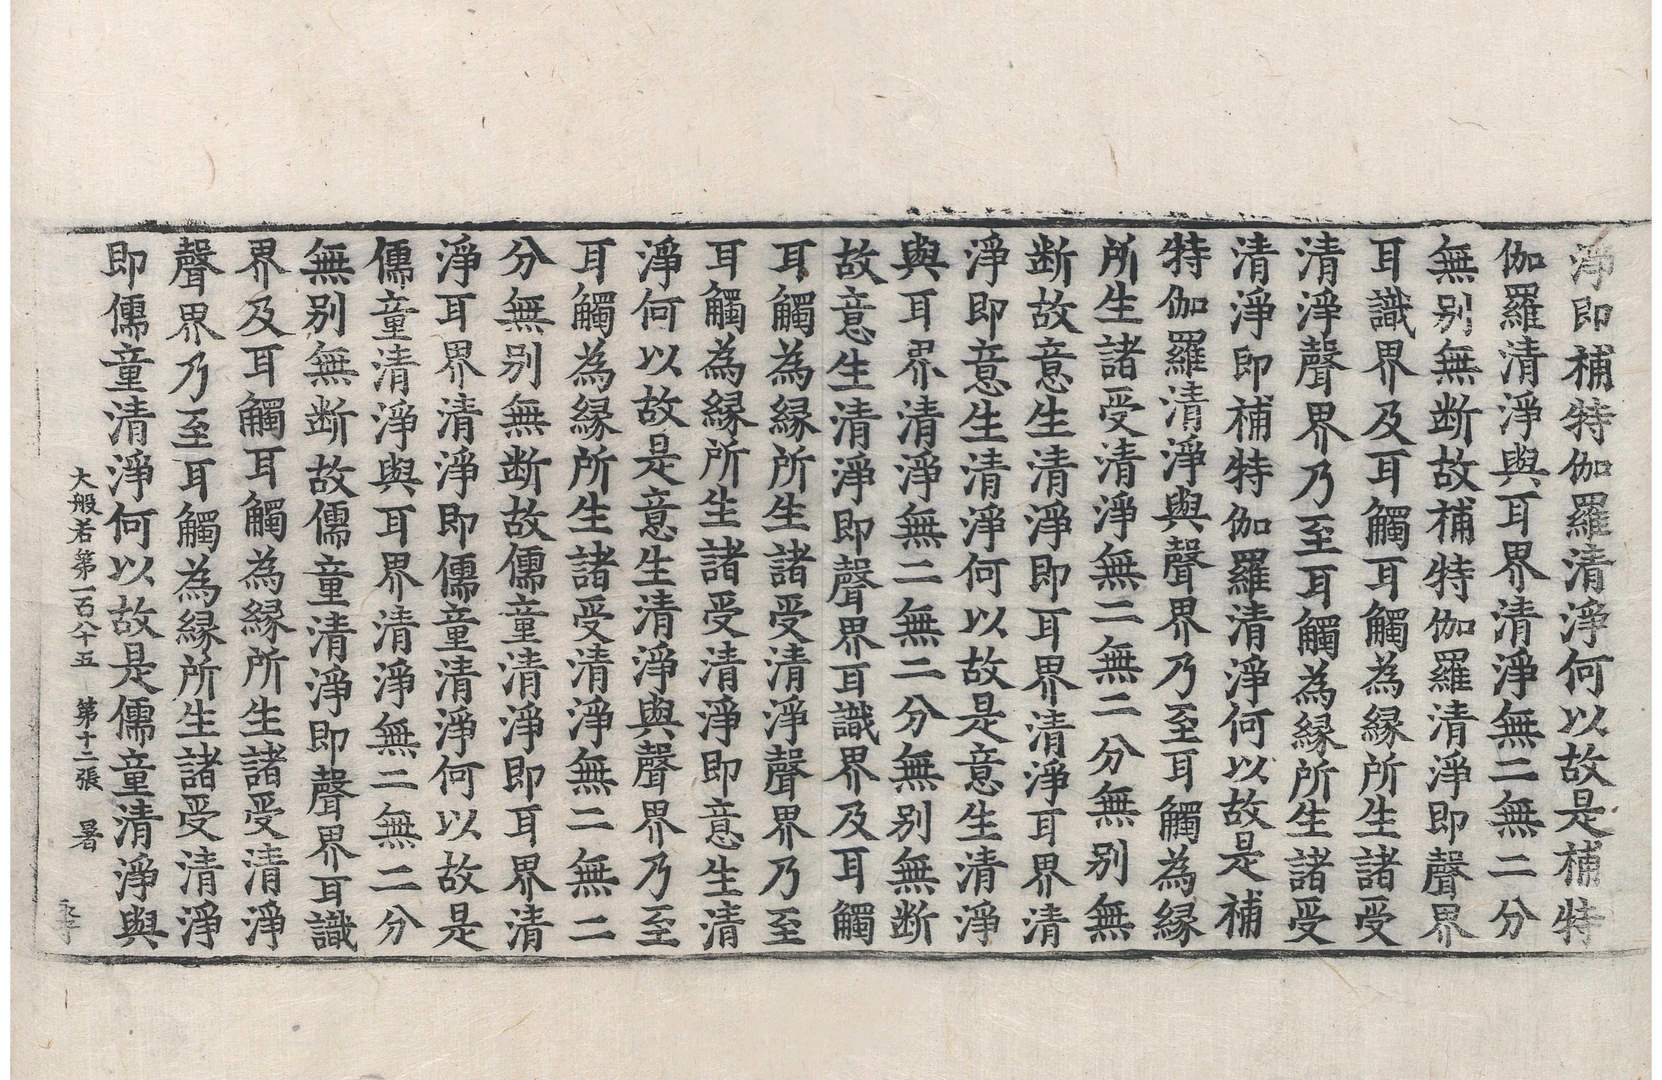 淨即補特伽羅清淨何以故是補特
伽羅清淨與耳界清淨無二無二分
無别無断故補特伽羅清淨即聲界
耳識界及耳觸耳觸為縁所生諸受
清淨聲界乃至耳觸為縁所生諸受
清淨即補特伽羅清淨何以故是補
特伽羅清淨與聲界乃至耳觸為縁
所生諸受清淨無二無二分無别無
断故意生清淨即耳界清淨耳界清
淨即意生清淨何以故是意生清淨
與耳界清淨無二無二分無别無断
故意生清淨即聲界耳識界及耳觸
耳觸為縁所生諸受清淨聲界乃至
耳觸為縁所生諸受清淨即意生清
淨何以故是意生清淨與聲界乃至
耳觸為縁所生諸受清淨無二無二
分無别無断故儒童清淨即耳界清
淨耳界清淨即儒童清淨何以故是
儒童清淨與耳界清淨無二無二分
無别無断故儒童清淨即聲界耳識
界及耳觸耳觸為縁所生諸受清淨
聲界乃至耳觸為縁所生諸受清淨
即儒童清淨何以故是儒童清淨與
大般若第一百八十五 第十二張 暑